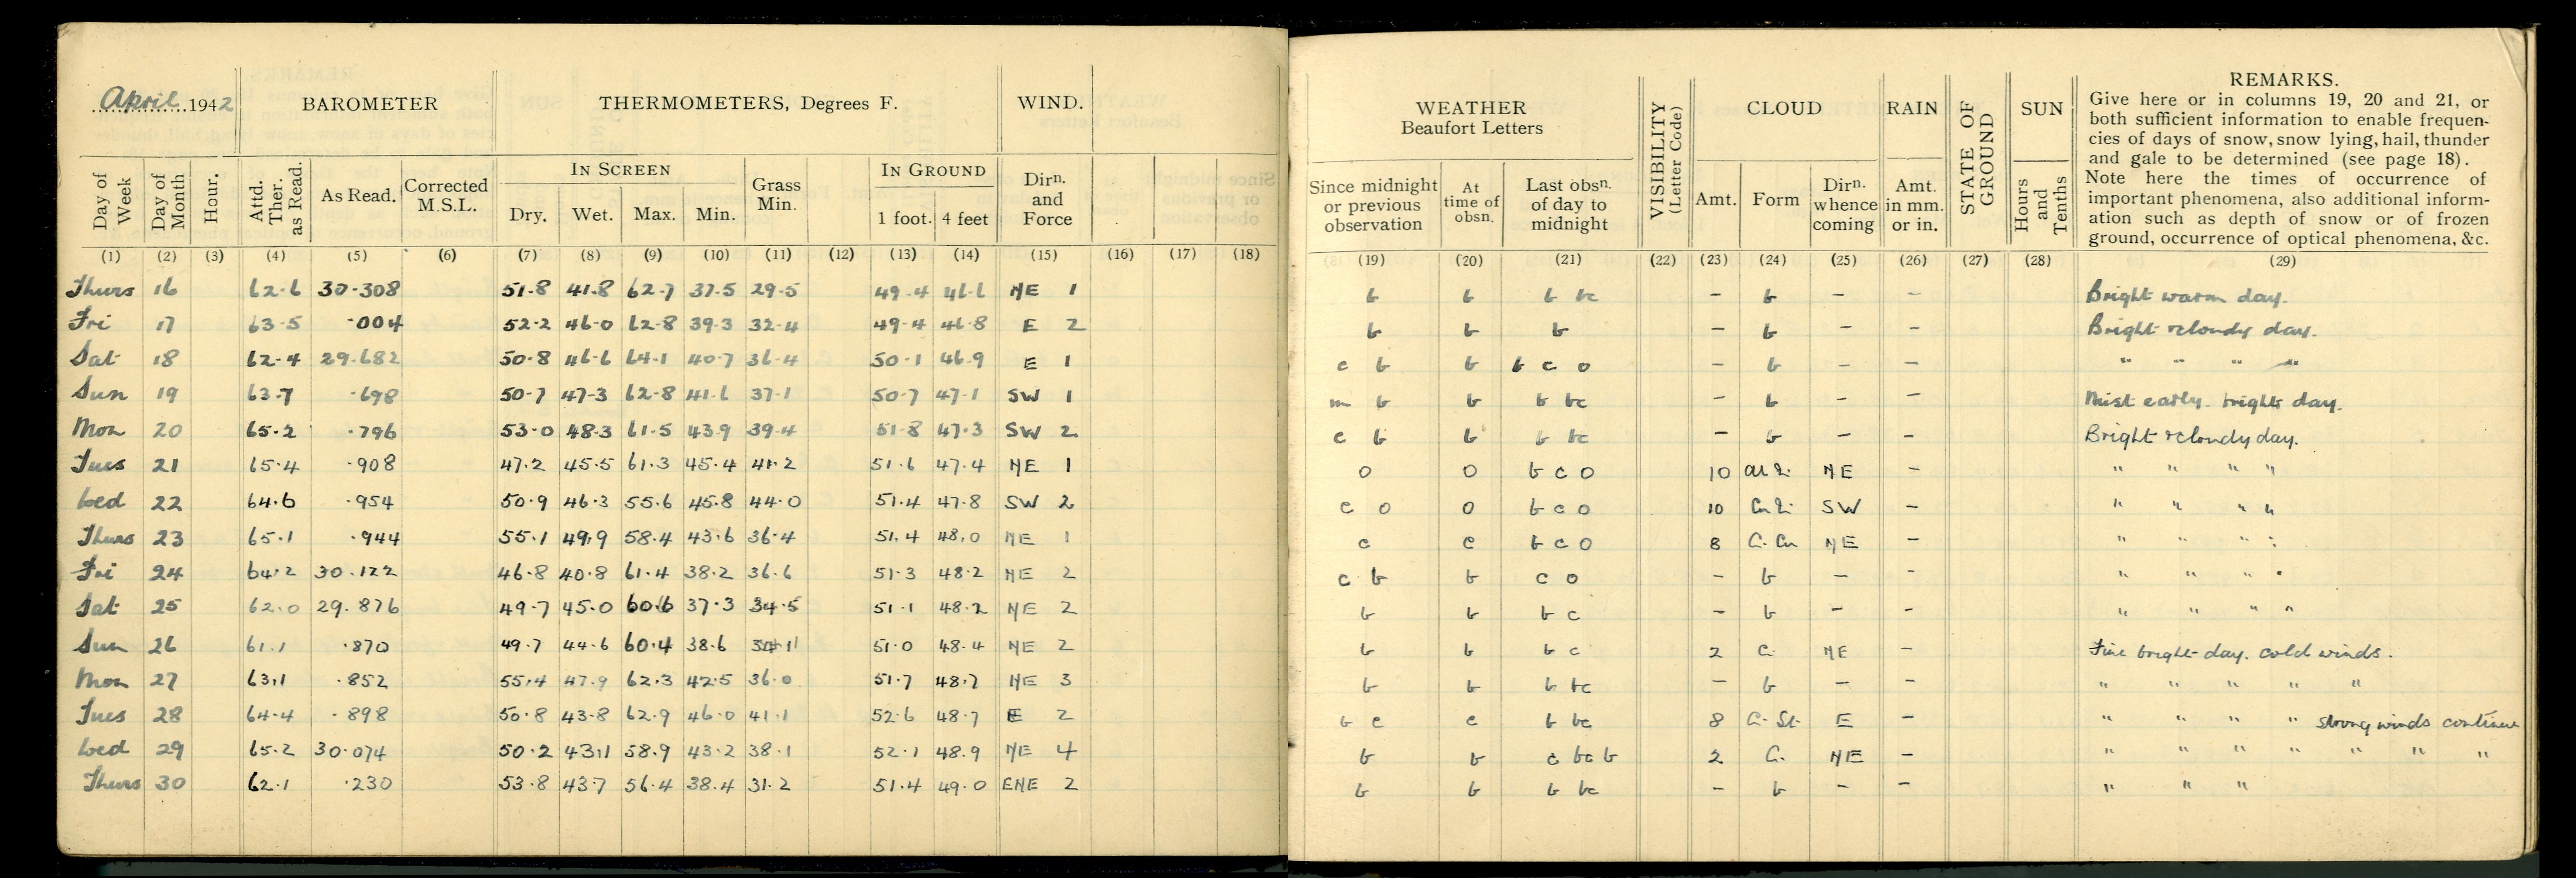 April 1942
BAROMETER
THERMOMETERS, Degrees F.
WIND.
Day of Week
Day of Month
Hour.
Attd. Ther. as Read.
As Read.
Corrected M.S.L.
IN SCREEN
Dry. Wet. Max. Min.
Grass Min.
IN GROUND
1 foot. 4 feet
Dirn. and Force
(1) (2) (3) (4) (5) (6) (7) (8) (9) (10) (11) (12) (13) (14) (15) (16) (17) (18)
Thurs 16 62.6 30.308 51.8 41.8 62.7 37.5 29.5 49.4 46.6 NE 1
Fri 17 63.5 .004 52.2 46.0 62.8 39.3 32.4 49.4 46.8 E 2
Sat 18 62.4 29.682 50.8 46.6 64.1 40.7 36.4 50.1 46.9 E 1
Sun 19 63.7 .698 50.7 47.3 62.8 41.6 37.1 50.7 47.1 SW 1
Mon 20 65.2 .796 53.0 48.3 61.5 43.9 39.4 51.8 47.3 SW 2
Tues 21 65.4 .908 47.2 45.5 61.3 45.4 41.2 51.6 47.4 NE 1
Wed 22 64.6 .954 50.9 46.3 55.6 45.8 44.0 51.4 47.8 SW 2
Thurs 23 65.1 .944 55.1 49.9 58.4 43.6 36.4 51.4 48.0 NE 1
Fri 24 64.2 30.122 46.8 40.8 61.4 38.2 36.6 51.3 48.2 NE 2
Sat 25 62.0 29.876 49.7 45.0 60.6 37.3 34.5 51.1 48.2 NE 2
Sun 26 61.1 .870 49.7 44.6 60.4 38.6 34.1 51.0 48.4 NE 2
Mon 27 63.1 .852 55.4 47.9 62.3 42.5 36.0 51.7 48.7 NE 3
Tues 28 64.4 .898 50.8 43.8 62.9 46.0 41.1 52.6 48.7 E 2
Wed 29 65.2 30.074 50.2 43.1 58.9 43.2 38.1 52.1 48.9 NE 4
Thurs 30 62.1 .230 53.8 43.7 56.4 38.4 31.2 51.4 49.0 ENE 2
WEATHER
Beaufort Letters
Since midnight or previous observation
At time of obsn.
Last obsn. of day to midnight
VISIBILITY (Letter Code)
CLOUD
Amt. Form Dirn. whence coming
RAIN
Amt. in mm. or in.
STATE OF GROUND
SUN
Hours and Tenths
REMARKS.
Give here or in columns 19, 20 and 21, or
both sufficient information to enable frequen-
cies of days of snow, snow lying, hail, thunder
and gale to be determined (see page 18).
Note here the times of occurrence of
important phenomena, also additional inform-
ation such as depth of snow or of frozen
ground, occurrence of optical phenomena, &c.
(19) (20) (21) (22) (23) (24) (25) (26) (27) (28) (29)
b b b bc - b - - Bright warm day.
b b b - b - - Bright & cloudy day.
c b b b c o - b - - " " " "
m b b b bc - b - - Mist early. bright day.
c b b b bc - b - - Bright & cloudy day.
o o b c o 10 NE - " " " "
c o o b c o 10 SW - " " " "
c c b c o 8 C. Cu NE - " " " "
c b b c o - b - - " " " "
b b b c - b - - " " " "
b b b c 2 C. NE - Fine bright day. cold winds.
b b b bc - b - - " " " " "
b c c b bc 8 C. St. E - " " " " strong winds continue
b b c bc b 2 C. NE - " " " " " " "
b b b bc - b - - " " "